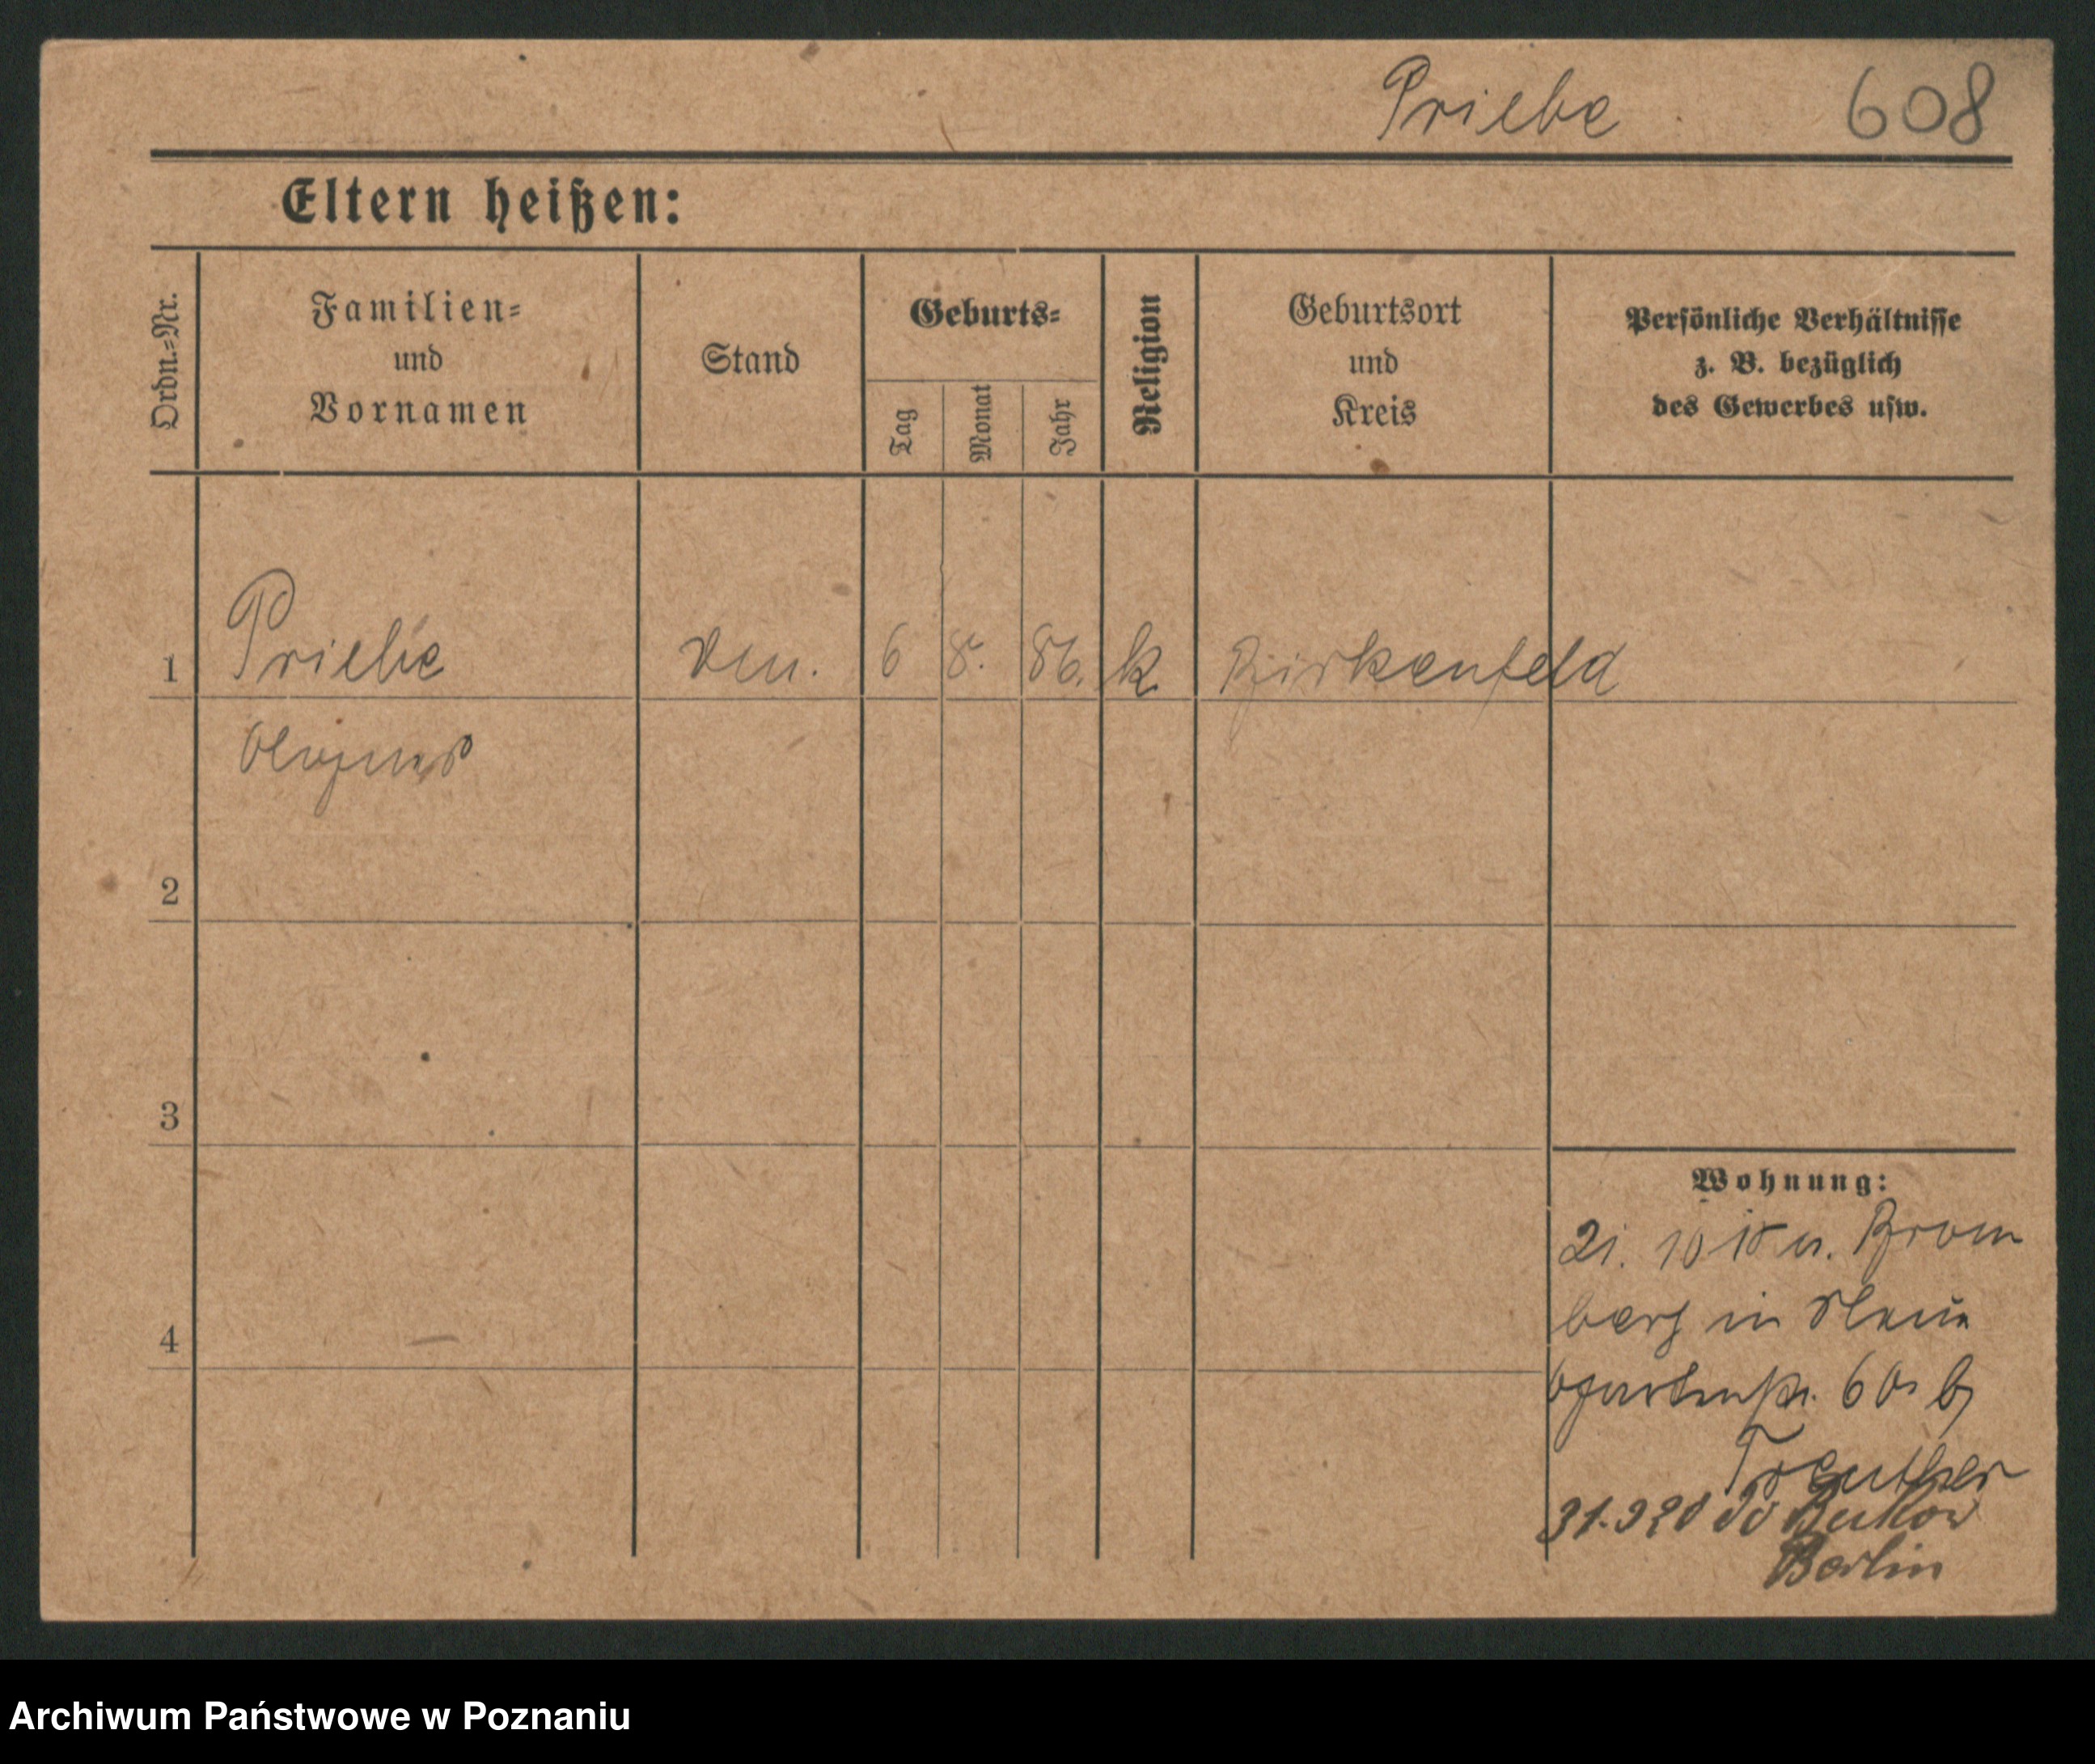 Priebe 608
Eltern heißen:
Ordn.-Nr.
Familien-
und
Vornamen
Stand
Geburts-
Tag
Monat
Jahr
Religion
Geburtsort
und
Kreis
Persönliche Verhältnisse
z. B. bezüglich
des Gewerbes usw.
1 Priebe 6 8. 86. k Birkenfeld
Agnes
2
3
4
Wohnung:
21. 10 18 v. Brom
berg in Klein
Gartenstr. 60 b
31.3 20 Bukow
Berlin